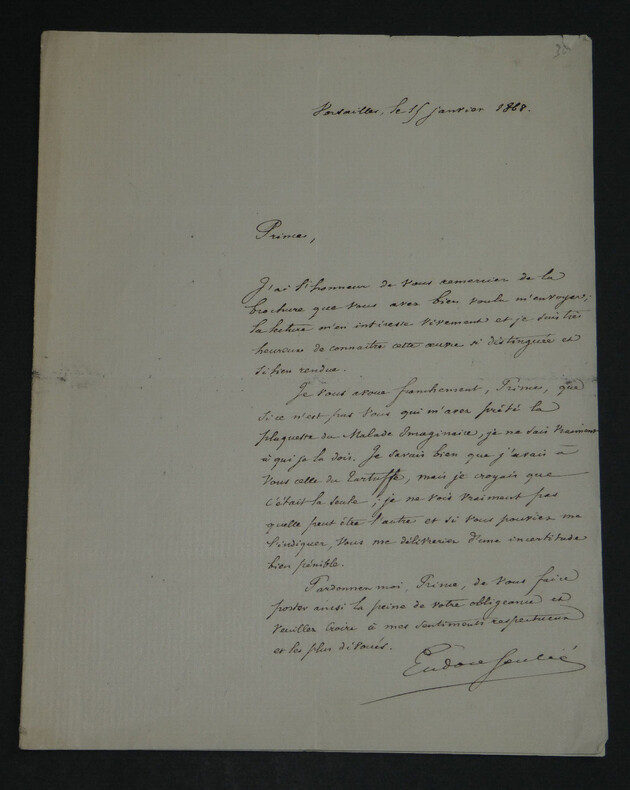 Versailles, le 15 janvier 1868.
Prince,
J'ai l'honneur de vous remercier de la
brochure que vous avez bien voulu m'envoyer;
la lecture m'en intéresse vivement et je suis très
heureux de connaître cette œuvre si distinguée et
si bien rendue.
Je vous avoue franchement, Prince, que
si ce n'est pas vous qui m'avez prêté la
plaquette du Malade Imaginaire, je ne sais vraiment
à qui je la dois. Je savais bien que j'avais à
vous celle du Tartuffe, mais je croyais que
c'était la seule; je ne vois vraiment pas
quelle peut être l'autre et si vous pouviez me
l'indiquer, vous me délivreriez d'une incertitude
bien pénible.
Pardonnez moi, Prince, de vous faire
porter ainsi la peine de votre obligeance et
veuillez croire à mes sentiments respectueux
et les plus dévoués.
Eudore Soulié